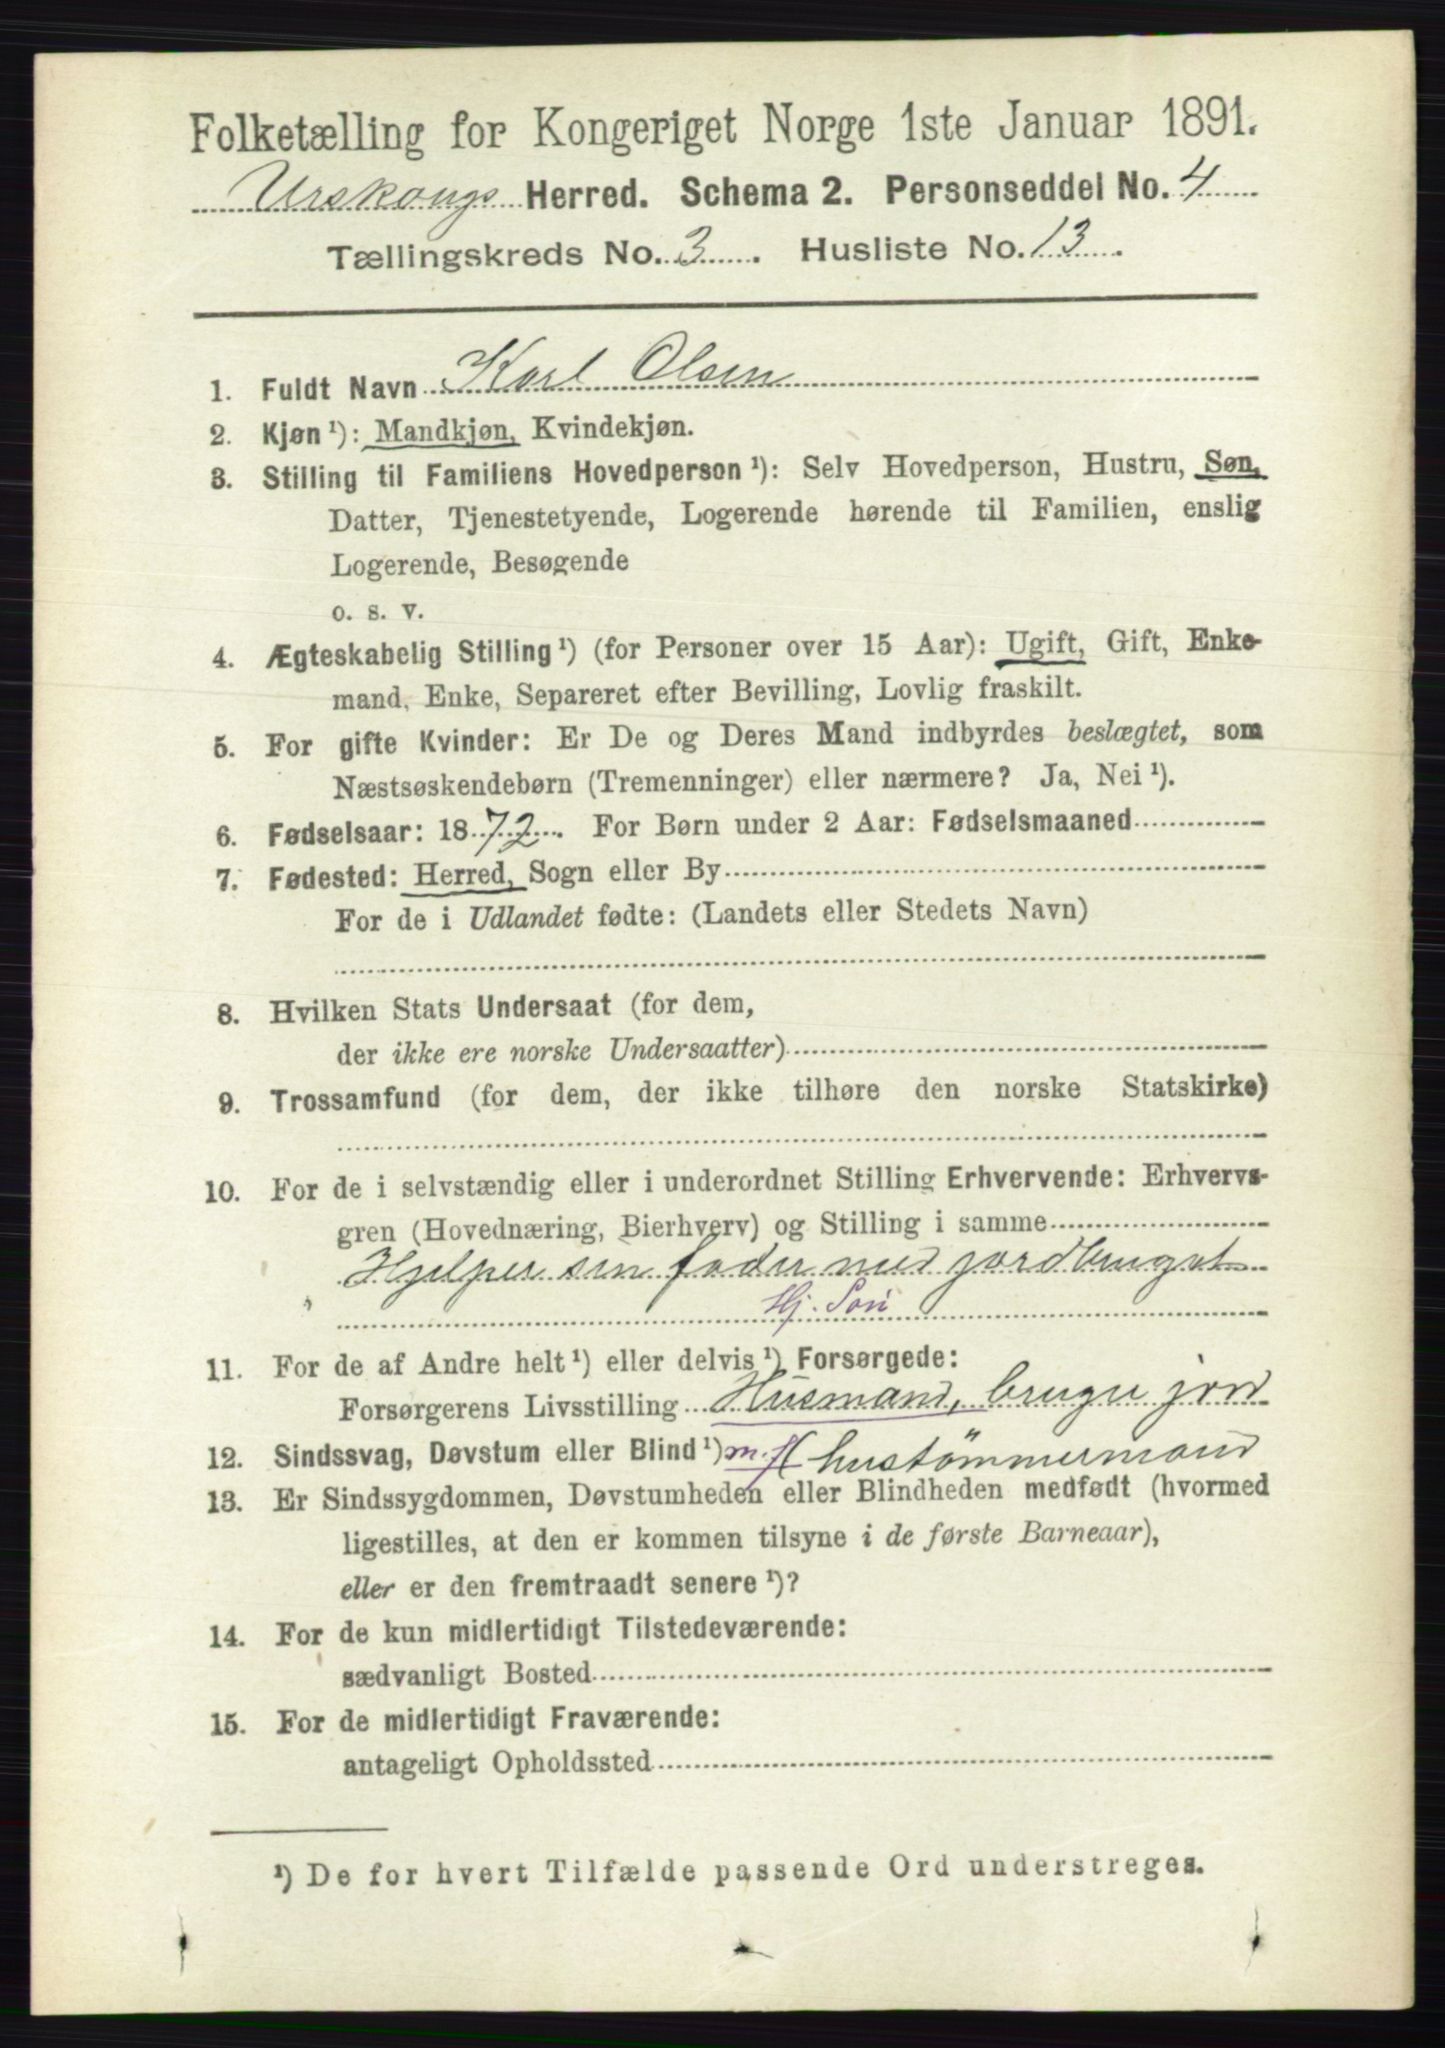 Folketælling for Kongeriget Norge 1ste Januar 1891.
Urskougs Herred. Schema 2. Personseddel No. 4
Tællingskreds No. 3. Husliste No. 13.
1. Fuldt Navn Karl Olsen
2. Kjøn ¹): Mandkjøn, Kvindekjøn.
3. Stilling til Familiens Hovedperson ¹): Selv Hovedperson, Hustru, Søn,
Datter, Tjenestetyende, Logerende hørende til Familien, enslig
Logerende, Besøgende
o. s. v.
4. Ægteskabelig Stilling ¹) (for Personer over 15 Aar): Ugift, Gift, Enke-
mand, Enke, Separeret efter Bevilling, Lovlig fraskilt.
5. For gifte Kvinder: Er De og Deres Mand indbyrdes beslægtet, som
Næstsøskendebørn (Tremenninger) eller nærmere? Ja, Nei ¹).
6. Fødselsaar: 1872. For Børn under 2 Aar: Fødselsmaaned
7. Fødested: Herred, Sogn eller By
For de i Udlandet fødte: (Landets eller Stedets Navn)
8. Hvilken Stats Undersaat (for dem,
der ikke ere norske Undersaatter)
9. Trossamfund (for dem, der ikke tilhøre den norske Statskirke)
10. For de i selvstændig eller i underordnet Stilling Erhvervende: Erhvervs-
gren (Hovednæring, Bierhverv) og Stilling i samme
Hjelper sin fader med jordbruget
Hj. Søn
11. For de af Andre helt ¹) eller delvis ¹) Forsørgede:
Forsørgerens Livsstilling Husmand, bruger jord
12. Sindssvag, Døvstum eller Blind ¹) m. J. hustømmermand
13. Er Sindssygdommen, Døvstumheden eller Blindheden medfødt (hvormed
ligestilles, at den er kommen tilsyne i de første Barneaar),
eller er den fremtraadt senere ¹)?
14. For de kun midlertidigt Tilstedeværende:
sædvanligt Bosted
15. For de midlertidigt Fraværende:
antageligt Opholdssted
¹) De for hvert Tilfælde passende Ord understreges.